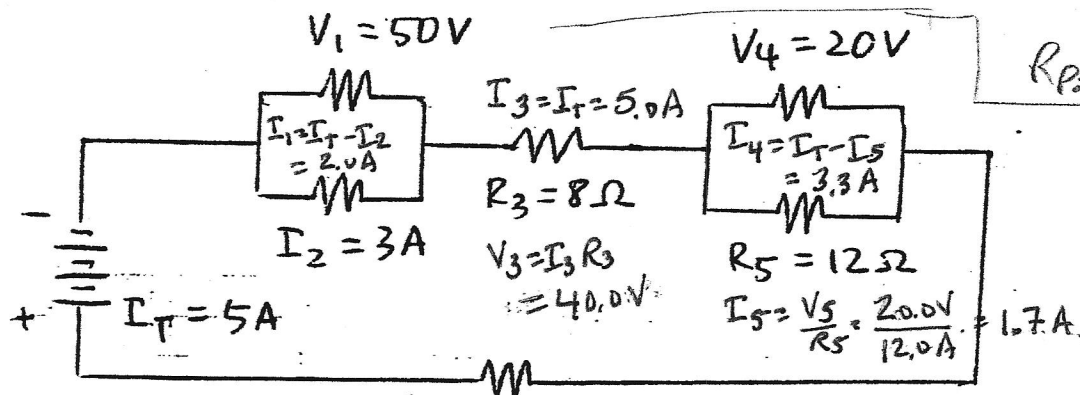 V₁ = 50V
V4 = 20V
I₁=I_T-I₂
= 2.0A
I₃=I_T=5.0A
I₄=I_T-I₅
= 3.3A
R₃ = 8Ω
I₂ = 3A
V₃=I₃R₃
=40.0V
R₅ = 12Ω
I₅=V₅/R₅=20.0V/12.0A=1.7A
-
+
I_T = 5A